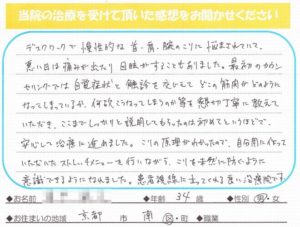 当院の治療を受けて頂いた感想をお聞かせください
デスクワークで慢性的な首・肩・腕のこりに悩まされていて、
悪い日は痛みが出たり目眩がすることもありました。最初のカウン
セリングでは自覚症状と触診を交じえてどこの筋肉がどのように
なってしまっているか、何故こうなってしまうのか等を懇切丁寧に教えて
いただき、ここまでしっかりと説明してもらったのは初めてというほどで、
安心して治療に迎めました。こりの原理がわかったので、自分用に作って
いただいたストレッチメニューを行いながら、こりを未然に防ぐように
意識できるようになれました。患者視線に立ってくれる良い治療院です
◆お名前 ◆年齢 34 歳 ◆性別 男・女
◆お住まいの地域 京都 市 南 区・町 ◆職業